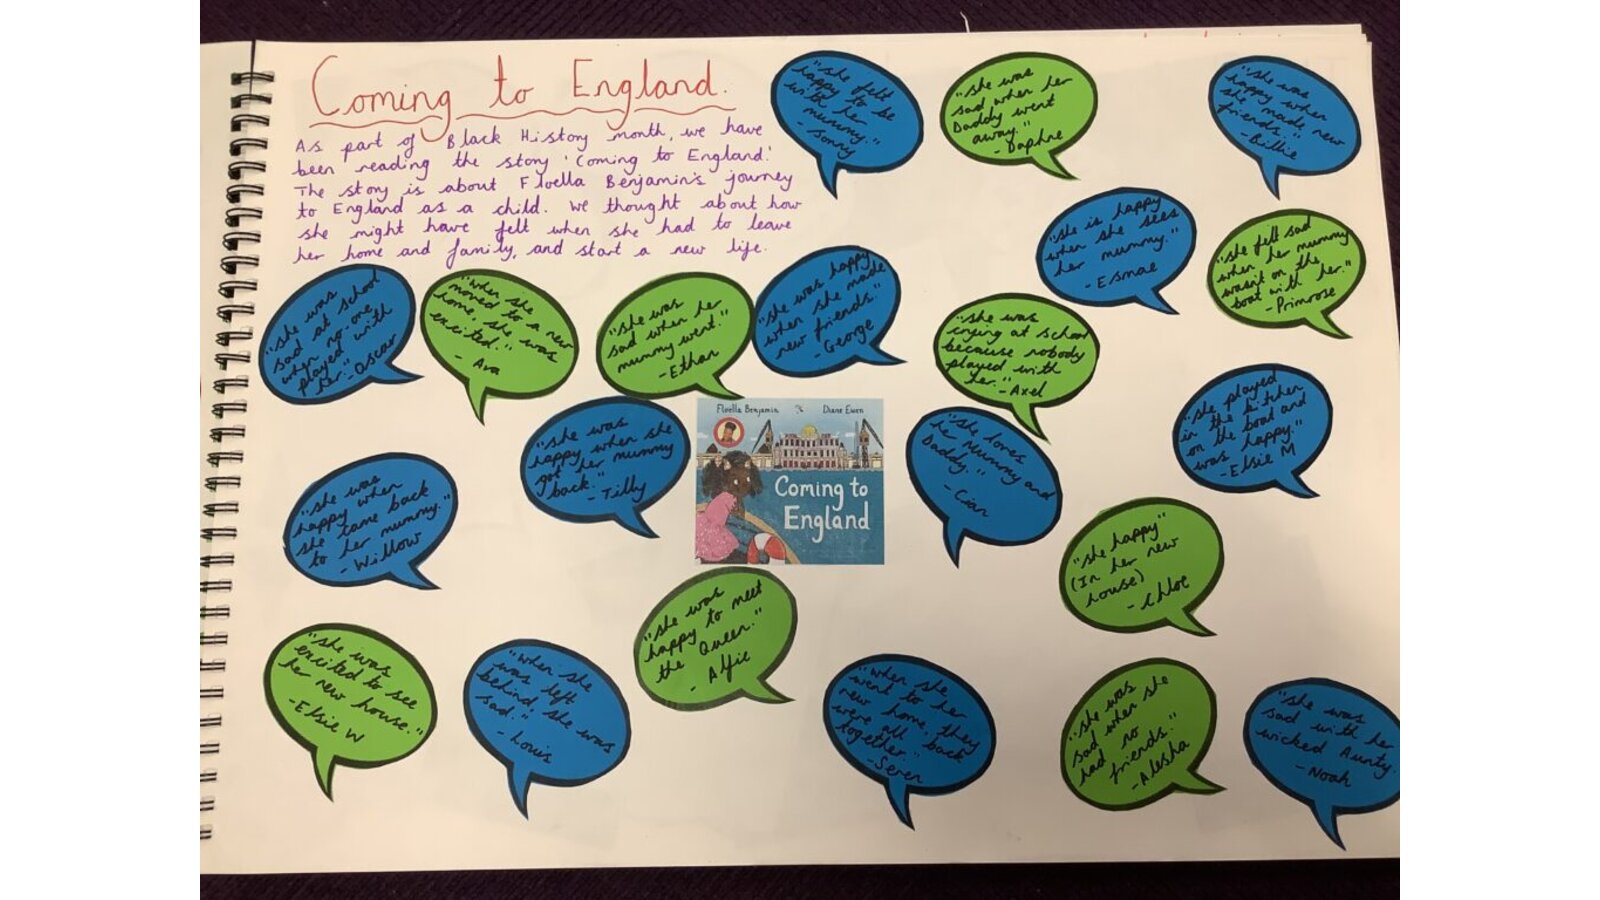 Coming to England.
As part of Black History month, we have
been reading the story 'Coming to England.'
The story is about Floella Benjamin's journey
to England as a child. We thought about how
she might have felt when she had to leave
her home and family, and start a new life.
"she felt
happy to be
with her
mummy."
- Sonny
"she was
sad when her
Daddy went
away."
- Daphne
"she was
happy when
she made new
friends."
- Billie
"she is happy
when she sees
her mummy."
- Esmae
"she felt sad
when her mummy
wasn't on the
boat with her."
- Primrose
"she was
sad at school
when no-one
played with
her." - Oscar
"when she
moved to a new
home, she was
excited."
- Ava
"she was
sad when her
mummy went."
- Ethan
"she was happy
when she made
new friends."
- George
"she was
crying at school
because nobody
played with
her." - Axel
"she played
in the kitchen
on the boat and
was happy."
- Elsie M
"she was
happy when
she came back
to her mummy."
- Willow
"she was
happy when she
got her mummy
back."
- Tilly
Floella Benjamin & Diane Ewen
Coming to
England
"she loves
her Mummy and
Daddy."
- Cian
"she happy"
(In her new
house)
- Chloe
"she was
excited to see
her new house."
- Elsie W
"when she
was left
behind, she was
sad."
- Louis
"she was
happy to meet
the Queen."
- Alfie
"when she
went to her
new home, they
were all back
together."
- Seren
"she was
sad when she
had no
friends."
- Alesha
"she was
sad with her
wicked Aunty.
- Noah